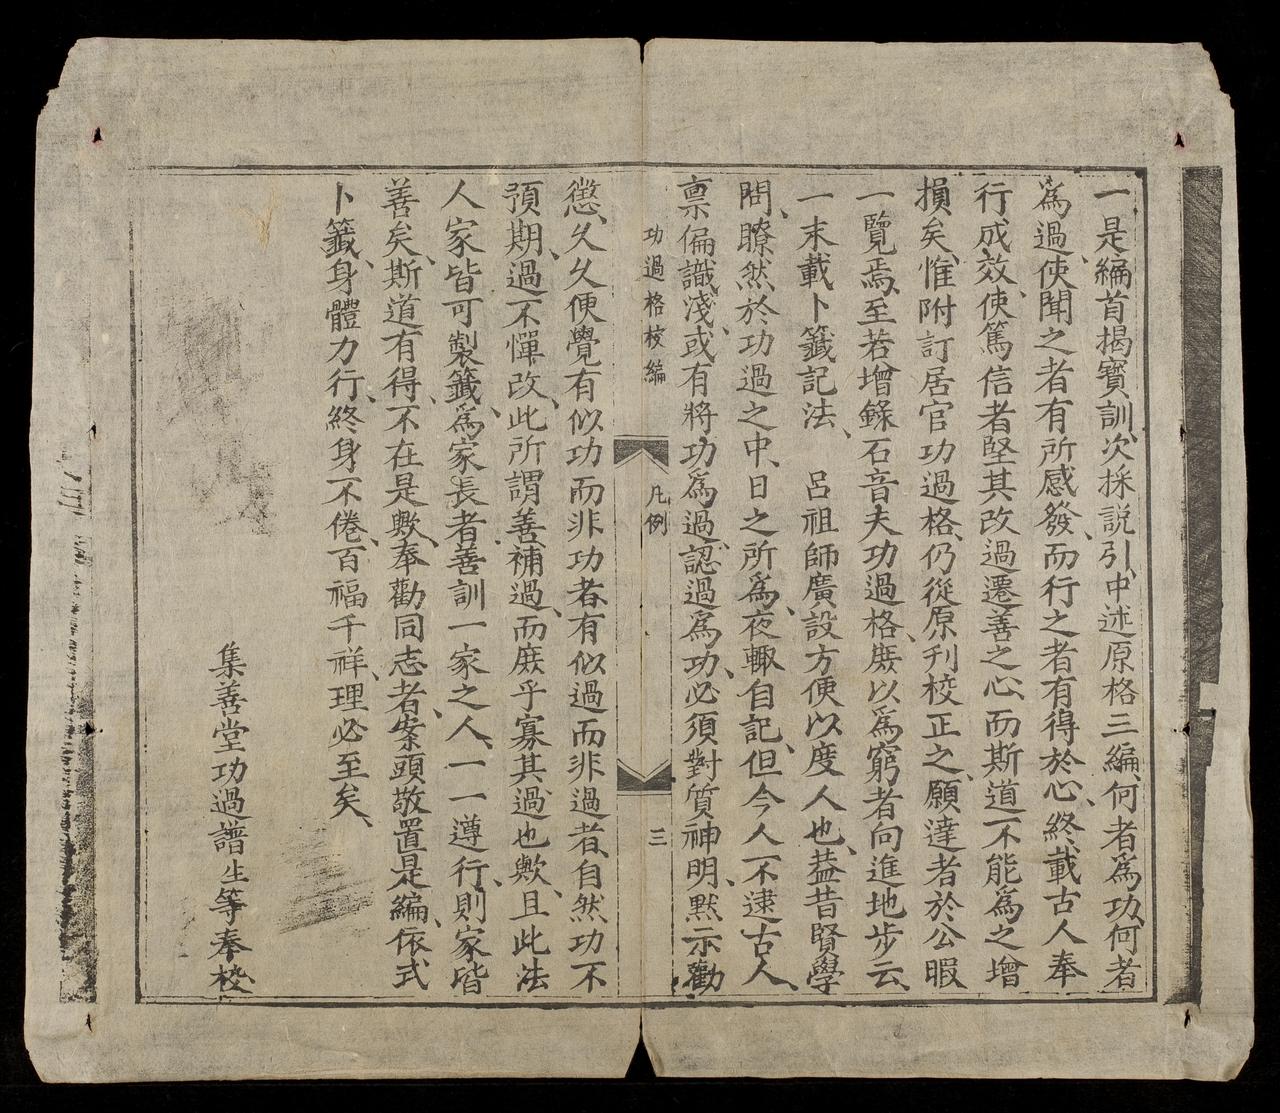 一是編首揭寳訓、次採説引、中述原格三編、何者爲功、何者
爲過、使聞之者有所感發、而行之者有得於心、終載古人奉
行成效、使篤信者堅其改過遷善之心、而斯道不能爲之增
損矣、惟附訂居官功過格、仍從原刋校正之、願達者於公暇
一覽焉、至若增錄石音夫功過格、庻以爲窮者向進地步云、
一末載卜籤記法、 呂祖師廣設方便以度人也、葢昔賢學
問、瞭然於功過之中、日之所爲、夜輙自記、但今人不逮古人、
禀偏識淺、或有將功爲過、認過爲功、必須對質神明、黙示勸
功過格校編 凡例 三
懲、久久便覺有似功而非功者、有似過而非過者、自然功不
預期、過不憚改、此所謂善補過、而庻乎寡其過也歟、且此法
人家皆可製籤、爲家長者善訓一家之人、一一遵行、則家皆
善矣、斯道有得、不在是歟、奉勸同志者、案頭敬置是編、依式
卜籤、身體力行、終身不倦、百福千祥、理必至矣、
集善堂功過譜生等奉校